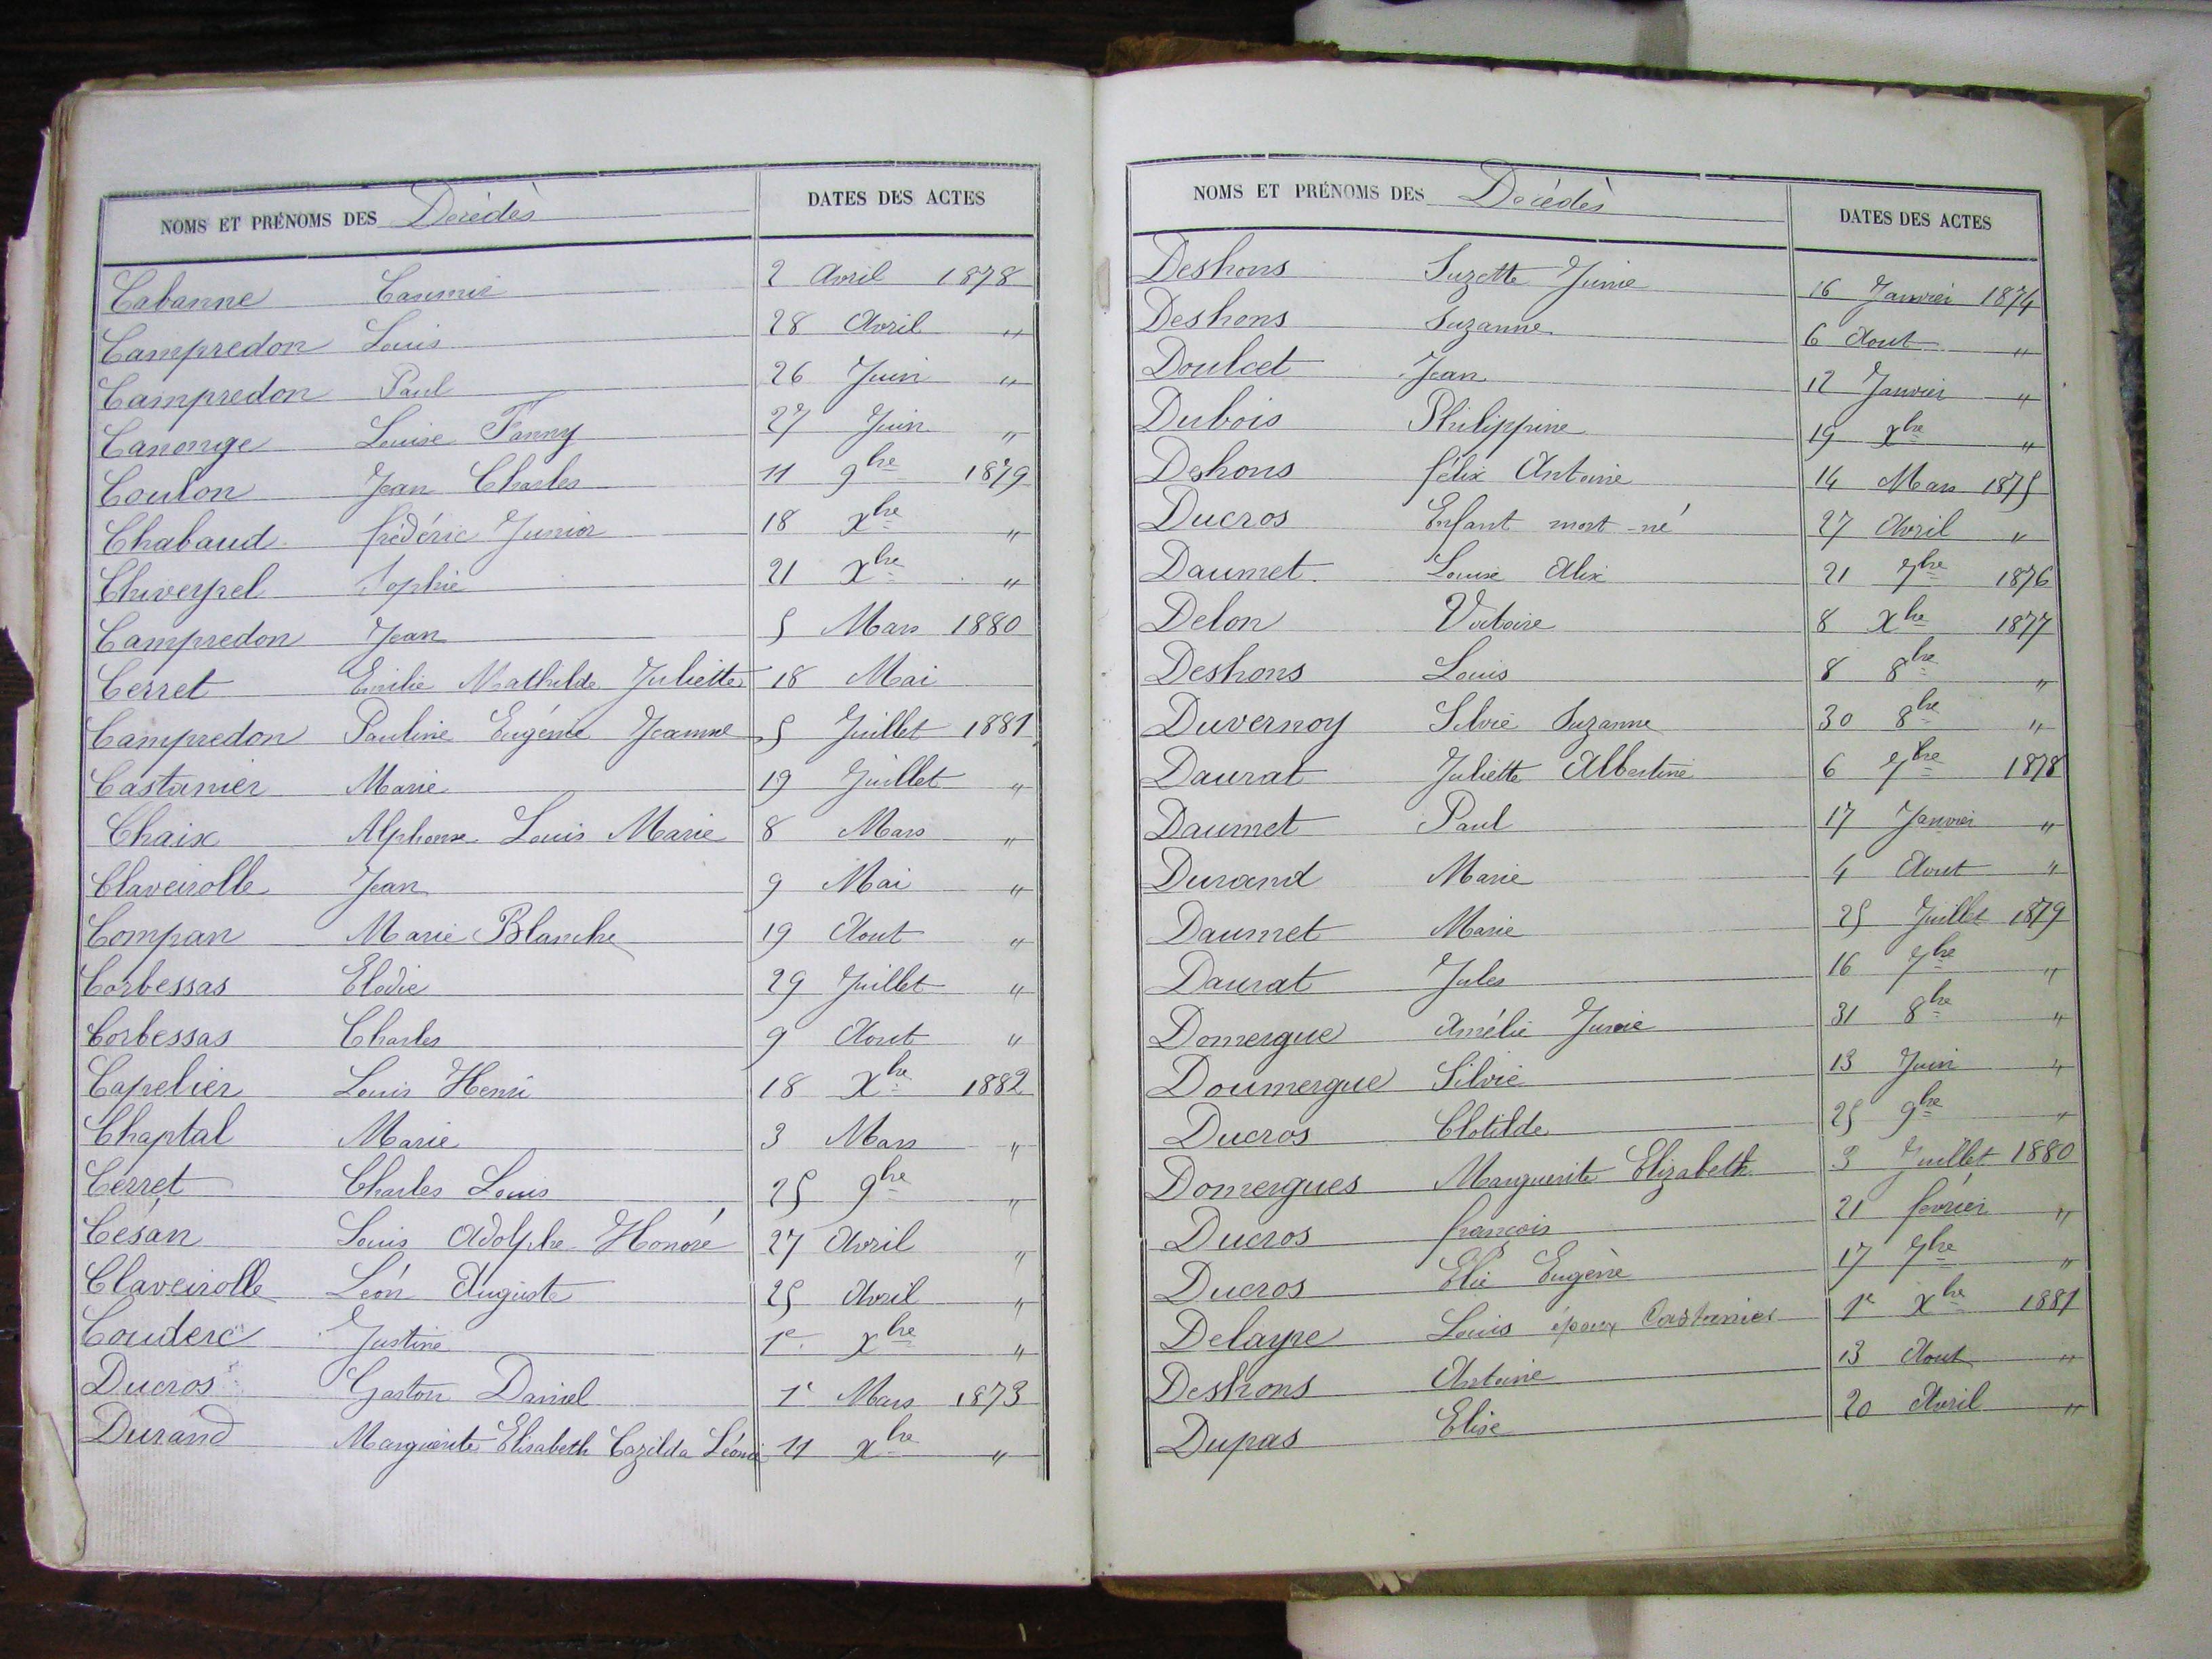 NOMS ET PRÉNOMS DES Décédés DATES DES ACTES
Cabanne Casimir 2 Avril 1878
Campredon Louis 28 Avril "
Campredon Paul 26 Juin "
Canonge Louise Fanny 27 Juin "
Coulon Jean Charles 11 9bre 1879
Chabaud frédéric Junior 18 Xbre "
Chiveyrel Sophie 21 Xbre "
Campredon Jean 5 Mars 1880
Cerret Emilie Mathilde Juliette 18 Mai
Campredon Pauline Eugénie Jeanne 5 Juillet 1881
Castanier Marie 19 Juillet "
Chaix Alphonse Louis Marie 8 Mars "
Claveirolle Jean 9 Mai "
Compan Marie Blanche 19 Aout "
Corbessas Elodie 29 Juillet "
Corbessas Charles 9 Aout "
Capelier Louis Henri 18 Xbre 1882
Chaptal Marie 3 Mars "
Cerret Charles Louis 25 9bre "
Césan Louis Adolphe Honoré 27 Avril "
Claveirolle Léon Auguste 25 Avril "
Couderc Justine 1e Xbre "
Ducros Gaston Daniel 1e Mars 1873
Durand Marguerite Elisabeth Cazilda Léonie 11 Xbre "
NOMS ET PRÉNOMS DES Décédés DATES DES ACTES
Deshons Suzette Junie 16 Janvier 1874
Deshons Suzanne 6 Aout "
Doulcet Jean 12 Janvier "
Dubois Philippine 19 Xbre "
Deshons félix Antoine 14 Mars 1875
Ducros Enfant mort-né 27 Avril "
Daumet Louise Alix 21 7bre 1876
Delon Victoire 8 Xbre 1877
Deshons Louis 8 8bre "
Duvernoy Silvie Suzanne 30 8bre "
Daurat Juliette Albertine 6 7bre 1878
Daumet Paul 17 Janvier "
Durand Marie 4 Aout "
Daumet Marie 25 Juillet 1879
Daurat Jules 16 7bre "
Domergue Amélie Junie 31 8bre "
Doumergue Silvie 13 Juin "
Ducros Clotilde 25 9bre "
Domergues Marguerite Elizabeth 3 Juillet 1880
Ducros françois 21 février "
Ducros Elie Eugène 17 7bre "
Delayre Louis époux Castanier 1e Xbre 1881
Deshons Antoine 13 Aout "
Dupas Elise 20 Avril "